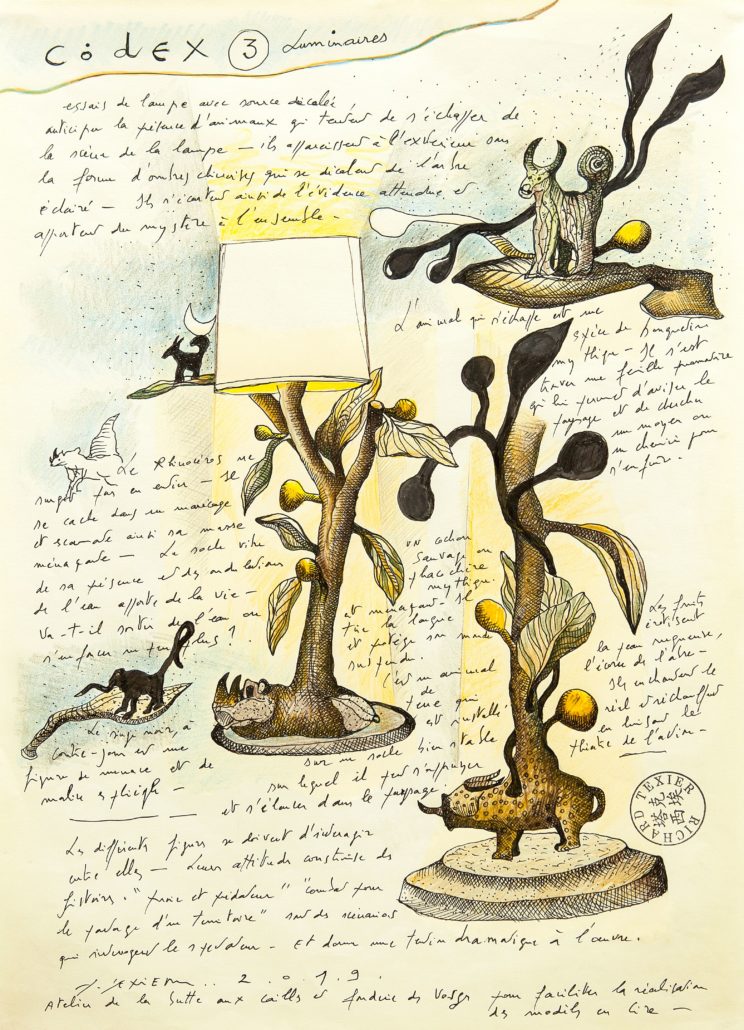 CodEX 3 Luminaires
essais de lampe avec source décalée
anticiper la présence d'animaux qui tentent de s'échapper de
la scène de la lampe — ils apparaissent à l'extérieur sous
la forme d'ombres chinoises qui se décalent de l'arbre
éclairé — Ils s'écartent ainsi de l'évidence attendue et
apportent du mystère à l'ensemble —
L'animal qui s'échappe est une
espèce de bouquetin
mythique — Il s'est
trouvé une feuille
qui lui permet d'aviser le
paysage et de chercher
un moyen ou
un chemin pour
s'enfuir.
Le Rhinocéros ne
surgit pas en entier — Il
se cache dans un marécage
et escamote ainsi sa masse
menaçante — Le socle vibre
de sa présence et des ondulations
de l'eau apporte de la vie —
Va-t-il sortir de l'eau ou
s'enfoncer un peu plus ?
un cochon
sauvage ou
phacochère
mythique.
et menaçant — Il
tire la langue
et protège son monde
suspendu.
C'est un animal
de
terre qui
est installé
sur un socle bien stable
sur lequel il peut s'appuyer
et s'élancer dans le paysage.
Les fruits
la peau rugueuse,
l'écorce de l'arbre —
Ils enchantent le
réel et réchauffent
en luisant le
théâtre de l'action —
Le singe noir, à
contre-jour est une
figure de menace et de
malice
RICHARD TEXIER
Les différentes figures se doivent d'interagir
entre elles — Leurs attitudes construisent des
histoires. "proie et prédateur" "combat pour
le partage d'un territoire" sont des scénarios
qui interrogent le spectateur — Et donne une tension dramatique à l'œuvre.
J. TEXIER .. 2.0.19.
Atelier de la butte aux cailles et fonderie des Vosges pour faciliter la réalisation
des modèles en cire —